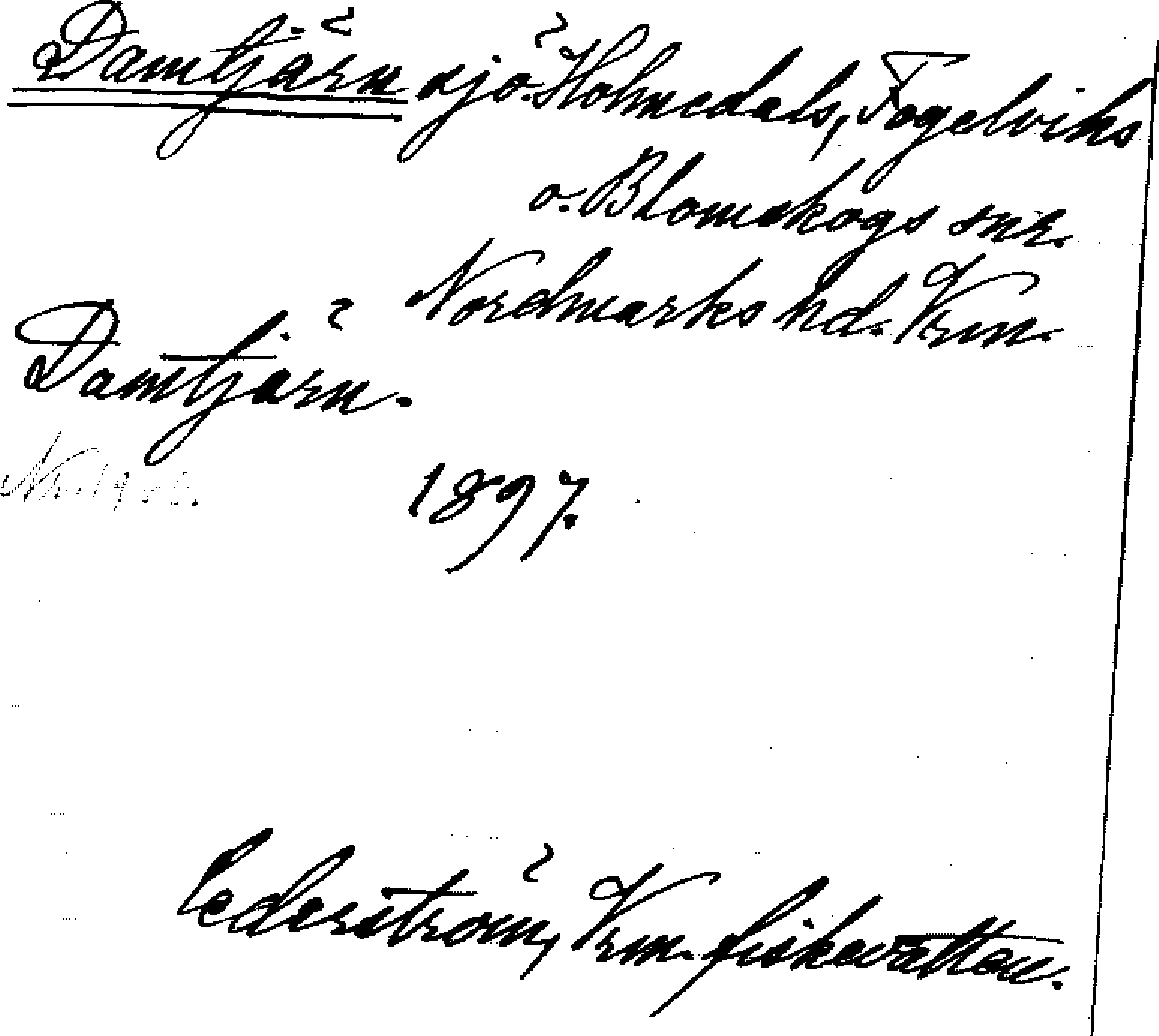 Damtjärn sjö. Holmedals, Fogelviks
o. Blomskogs snr.
Nordmarks hd. Vrm.
Damtjärn.
1897.
Cederström, Vrm. fiskevatten.